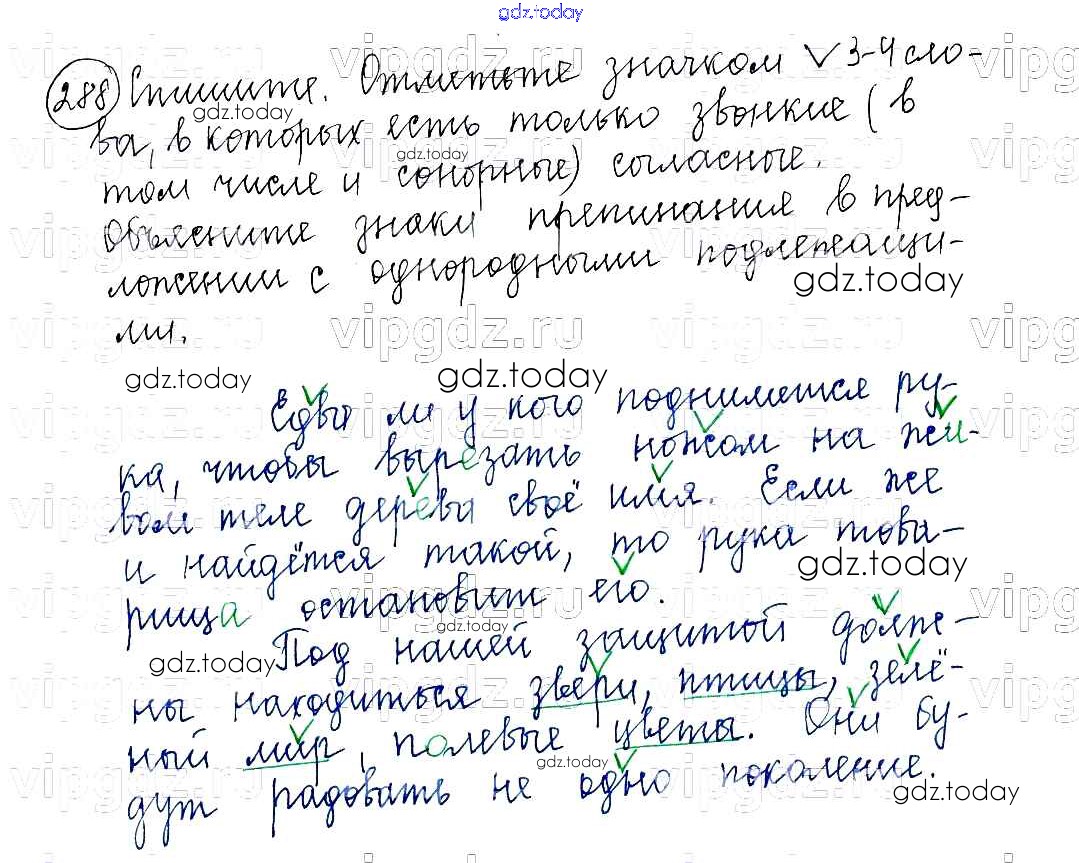 gdz.today
288 Спишите. Отметьте значком ✓ 3-4 сло-
ва, в которых есть только звонкие (в
том числе и сонорные) согласные.
Объясните знаки препинания в пред-
ложении с однородными подлежащи-
ми.
Едва ли у кого поднимется ру-
ка, чтобы вырезать ножом на жи-
вом теле дерева своё имя. Если же
и найдётся такой, то рука това-
рища остановит его.
Под нашей защитой долж-
ны находиться звери, птицы, зелё-
ный мир, полевые цветы. Они бу-
дут радовать не одно поколение.